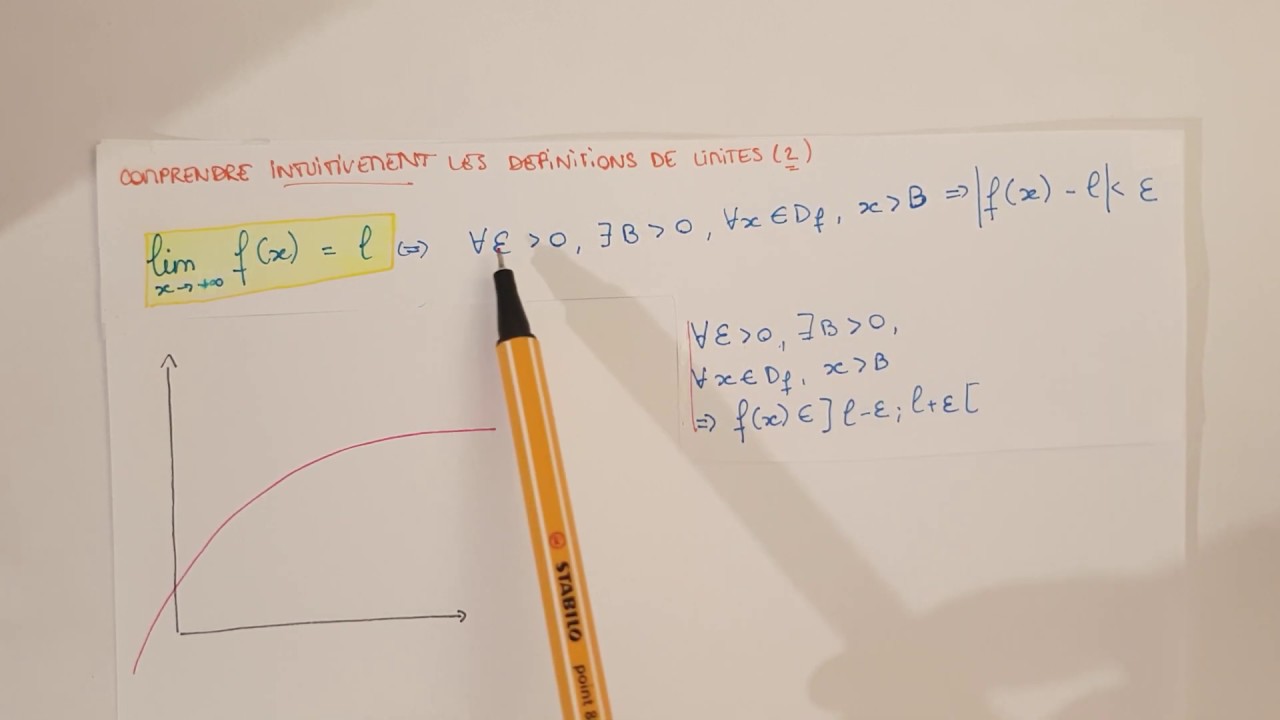 COMPRENDRE INTUITIVEMENT LES DEFINITIONS DE LIMITES (2)
lim f(x) = l <=> ∀ε >0, ∃B>0, ∀x∈Df, x>B =>|f(x) - l|< ε
x→+∞
∀ε>0, ∃B>0,
∀x∈Df, x>B
=> f(x)∈]l-ε; l+ε[
STABILO
point 8